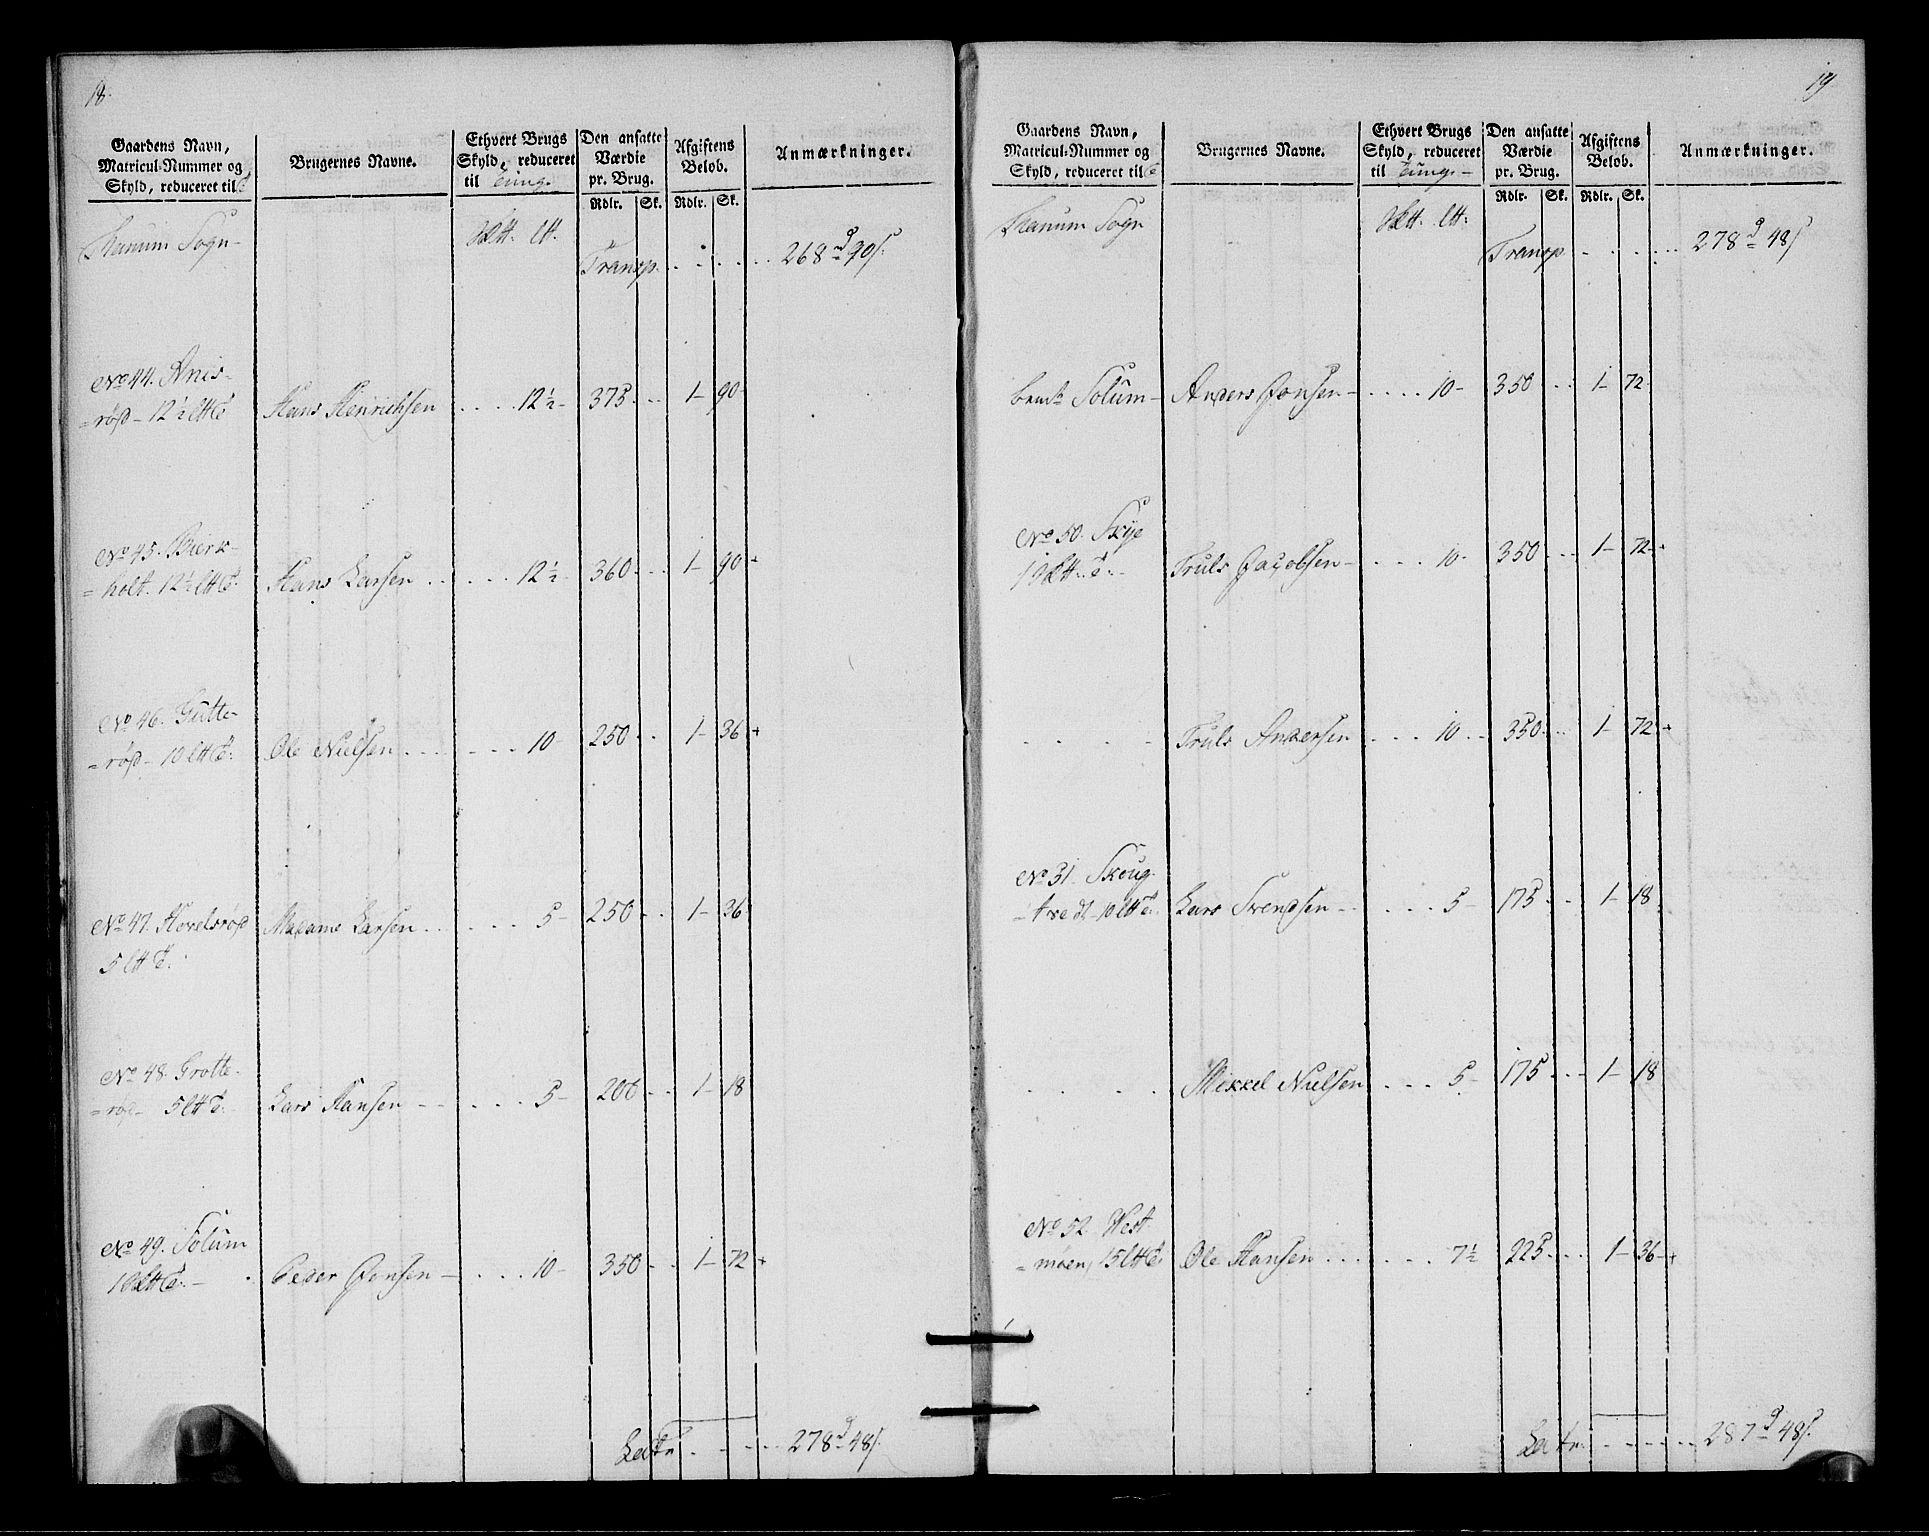 18.
Gaardens Navn,
Matricul-Nummer og
Skyld, reduceret til
Brugernes Navne.
Ethvert Brugs
Skyld, reduceret
til Tung.
Den ansatte
Værdie
pr. Brug.
Rdlr. Sk.
Afgiftens
Beløb.
Rdlr. Sk.
Anmærkninger.
Ranum Sogn-
Transp. 268 90
No 44. Anis-
=röd- 12½ Hans Henrichsen 12½- 375 1- 90-
No 45. Bierk-
=holt. 12½ Hans Larsen 12½- 360 1- 90
No 46. Gutte-
=röd- 10 Ole Nielsen 10- 250 1- 36
No 47. Hovelsröd Madame Larsen 5- 250 1- 36
5
No 48. Grotte-
=röd- 5 Lars Hansen 5- 200 1- 18
No 49. Solum
10 Peder Jonsen 10- 350 1- 72
Latr. 278 48
19
Gaardens Navn,
Matricul-Nummer og
Skyld, reduceret til
Brugernes Navne.
Ethvert Brugs
Skyld, reduceret
til Tung-
Den ansatte
Værdie
pr. Brug.
Rdlr. Sk.
Afgiftens
Beløb.
Rdlr. Sk.
Anmærkninger.
Ranum Sogn
Transp. 278 48
Solum- Anders Jonsen- 10- 350 1- 72
No 50. Skye
1 Truls Jacobsen- 10- 350 1- 72
Truls Andersen 10 350 1- 72
No 31. Skoug-
tvedt- 10 Lars Svendsen 5- 175 1- 18
Mikkel Nielsen 5- 175 1- 18
No 52. West
=möen, 15 Ole Hansen 7½ 225 1- 36
Latr. 287 48